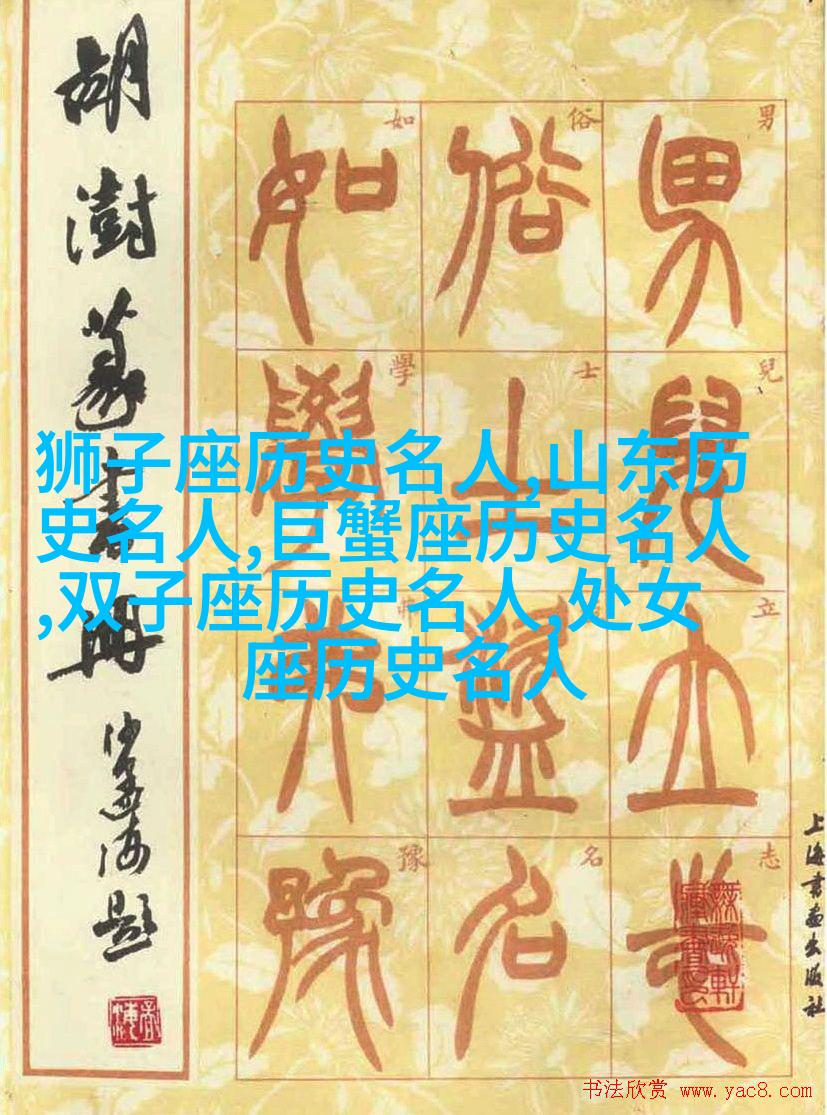 胡澍篆书册
沙孟海题
男
俗
如
男俗如
兒
士
學
兒士學
立
立
志
名
豫
名豫
上海书画出版社
狮子座历史名人,山东历
史名人,巨蟹座历史名人
,双子座历史名人,处女
座历史名人
书法欣赏 www.yac8.com